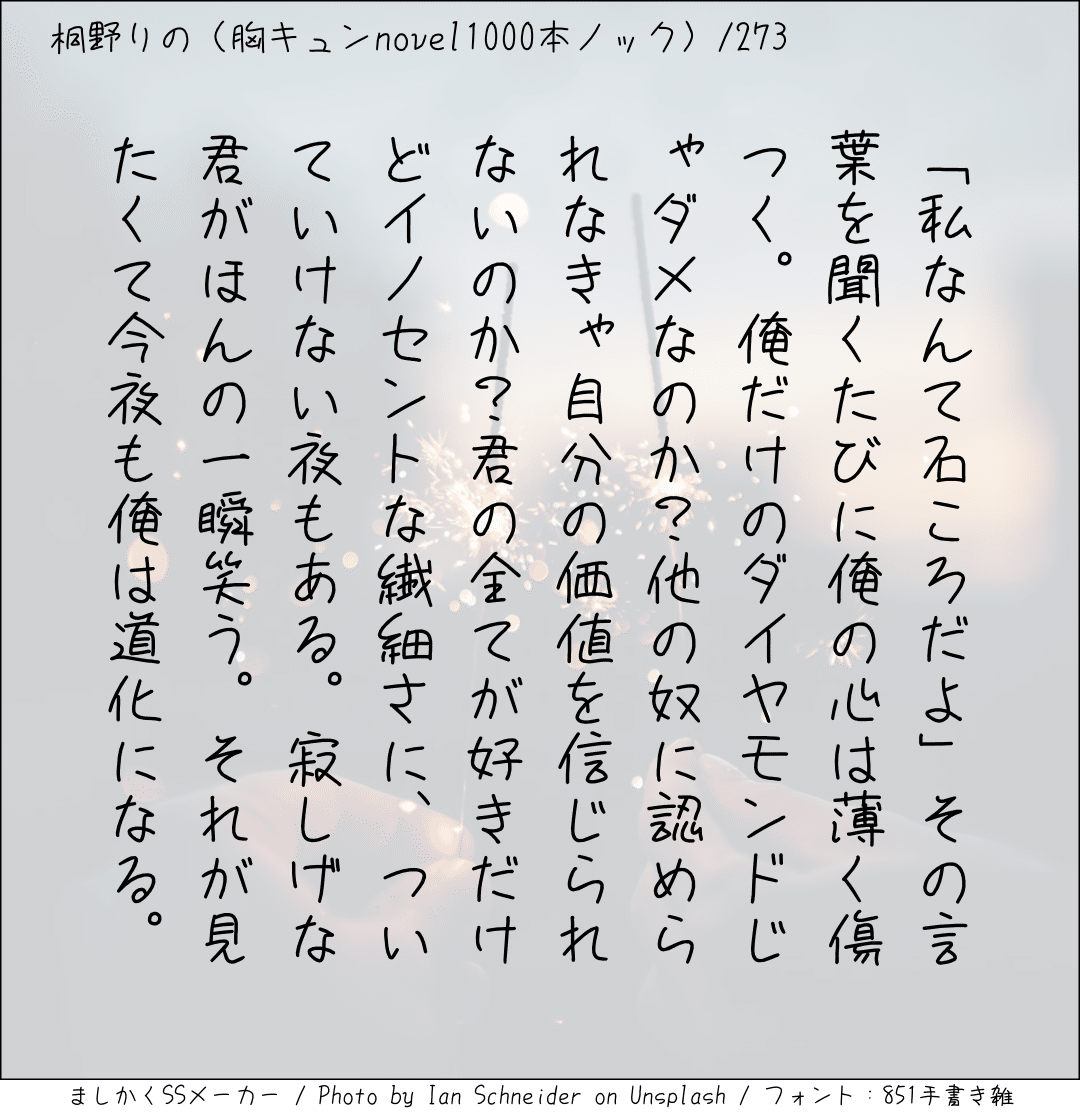 桐野りの（胸キュンnovel1000本ノック）/273
「私なんて石ころだよ」その言
葉を聞くたびに俺の心は薄く傷
つく。俺だけのダイヤモンドじ
ゃダメなのか？他の奴に認めら
れなきゃ自分の価値を信じられ
ないのか？君の全てが好きだけ
どイノセントな繊細さに、つい
ていけない夜もある。寂しげな
君がほんの一瞬笑う。それが見
たくて今夜も俺は道化になる。
ましかくSSメーカー / Photo by Ian Schneider on Unsplash / フォント：851手書き雑